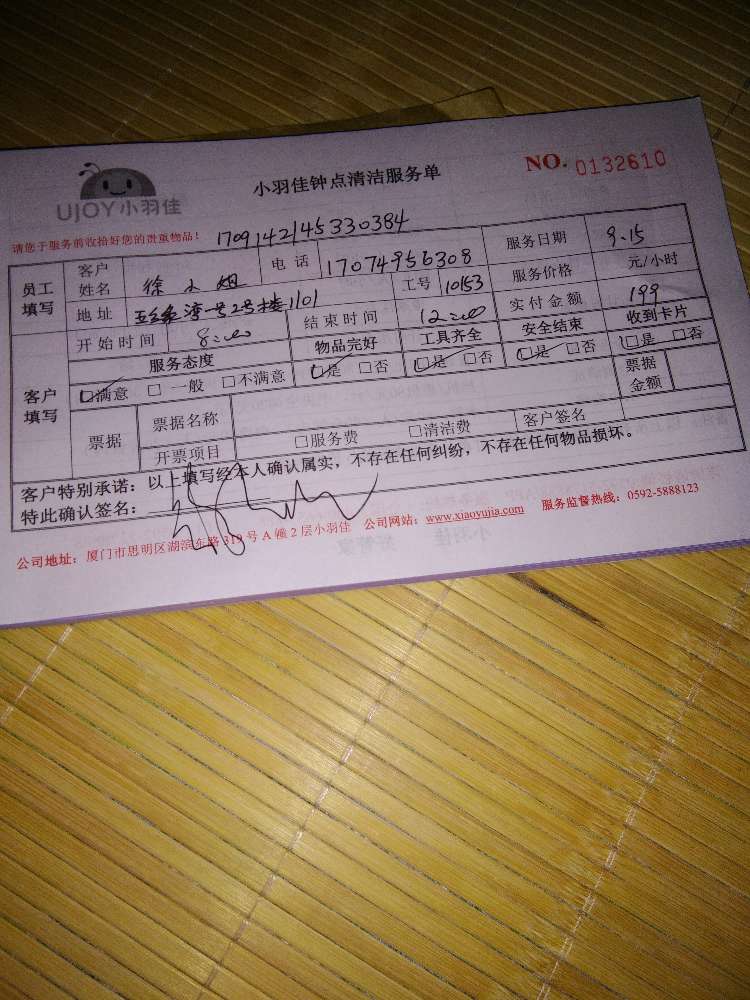 UJOY小羽佳
小羽佳钟点清洁服务单
NO. 0132610
请您于服务前收拾好您的贵重物品! 1709142145330384
员工填写 客户姓名 徐小姐 电话 17074956308 服务日期 9.15
地址 湾一号2号楼1101 工号 10153 服务价格 元/小时
开始时间 8:00 结束时间 12:00 实付金额 199
客户填写 服务态度 物品完好 工具齐全 安全结束 收到卡片
☑满意 □一般 □不满意 ☑是 □否 ☑是 □否 ☑是 □否 ☑是 □否
票据 票据名称 票据金额
开票项目 □服务费 □清洁费 客户签名
客户特别承诺:以上填写经本人确认属实,不存在任何纠纷,不存在任何物品损坏。
特此确认签名:
公司地址:厦门市思明区湖滨东路319号A幢2层小羽佳 公司网站:www.xiaoyujia.com 服务监督热线:0592-5888123